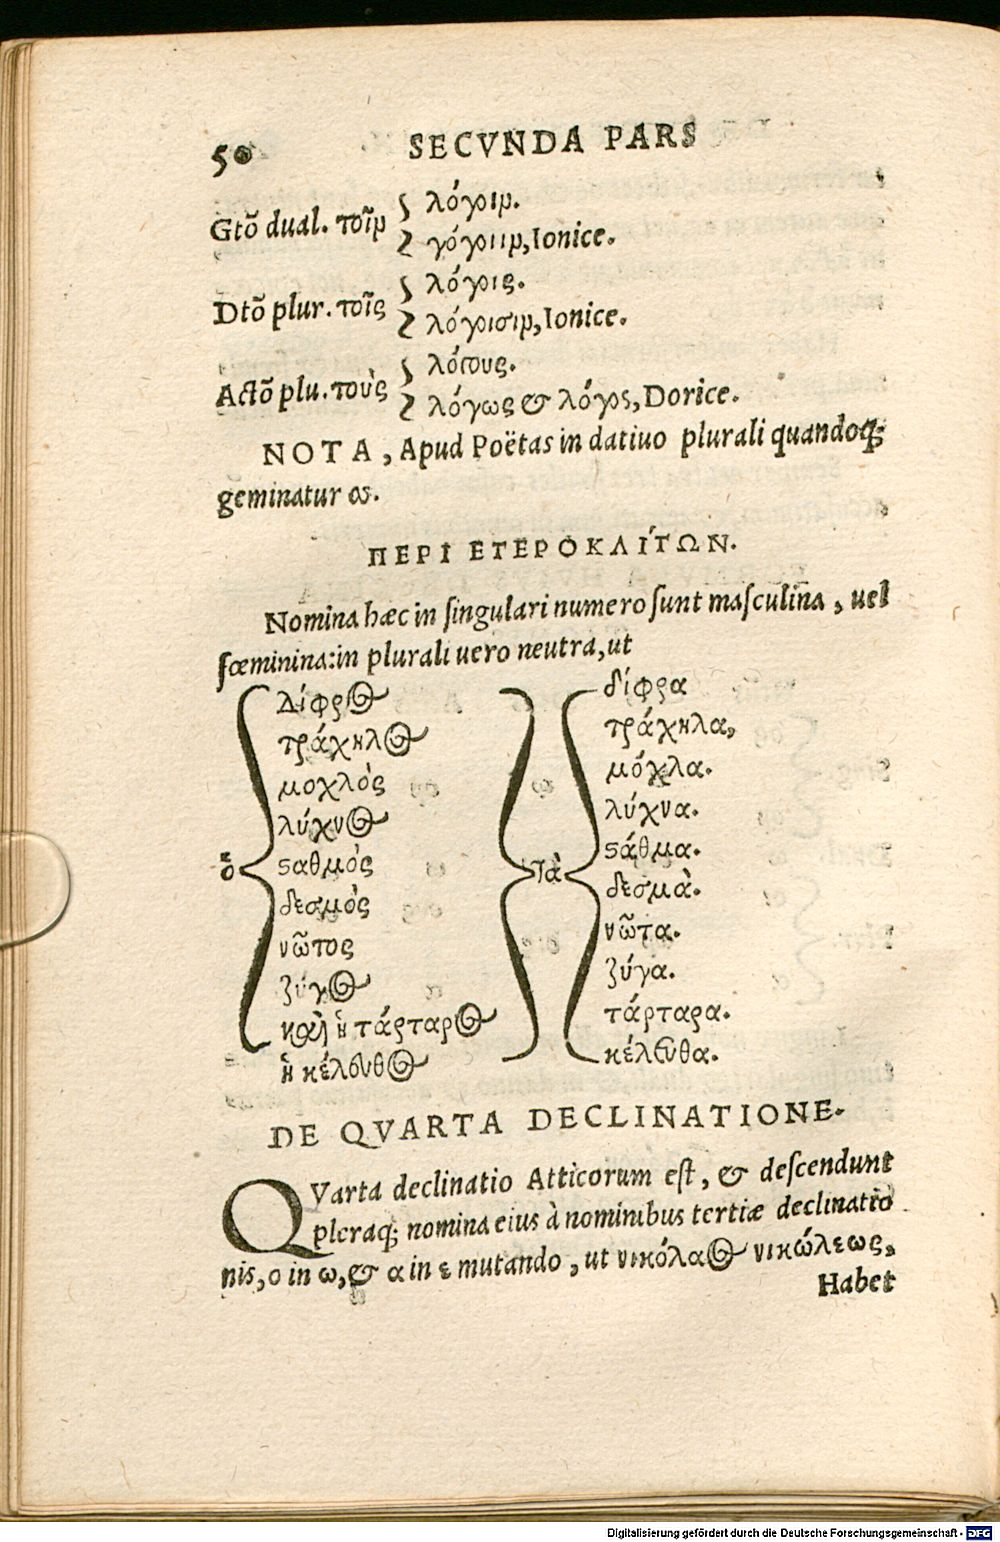 50 SECVNDA PARS
Gtõ dual. τοῖν { λόγοιν.
γόγοιιν, Ionice.
Dtõ plur. τοῖς { λόγοις.
λόγοισιν, Ionice.
Actõ plu. τοὺς { λόγους.
λόγως & λόγος, Dorice.
NOTA, Apud Poëtas in datiuo plurali quandoq;
geminatur σσ.
ΠΕΡΙ ΕΤΕΡΟΚΛΙΤΩΝ.
Nomina hæc in ſingulari numero ſunt maſculina, uel
fœminina: in plurali uero neutra, ut
Δίφρος δίφρα
τράχηλος τράχηλα,
μοχλὸς μόχλα.
λύχνος λύχνα.
ὁ ϛαθμὸς Τὰ ϛάθμα.
δεσμὸς δεσμὰ.
νῶτος νῶτα.
ζύγος ζύγα.
καὶ ἡ τάρταρος τάρταρα.
ἡ κέλευθος κέλευθα.
DE QVARTA DECLINATIONE.
QVarta declinatio Atticorum eſt, & deſcendunt
pleraq; nomina eius à nominibus tertiæ declinatio
nis, ο in ω, & α in ε mutando, ut νικόλαος νικώλεως,
Habet
Digitalisierung gefördert durch die Deutsche Forschungsgemeinschaft - DFG